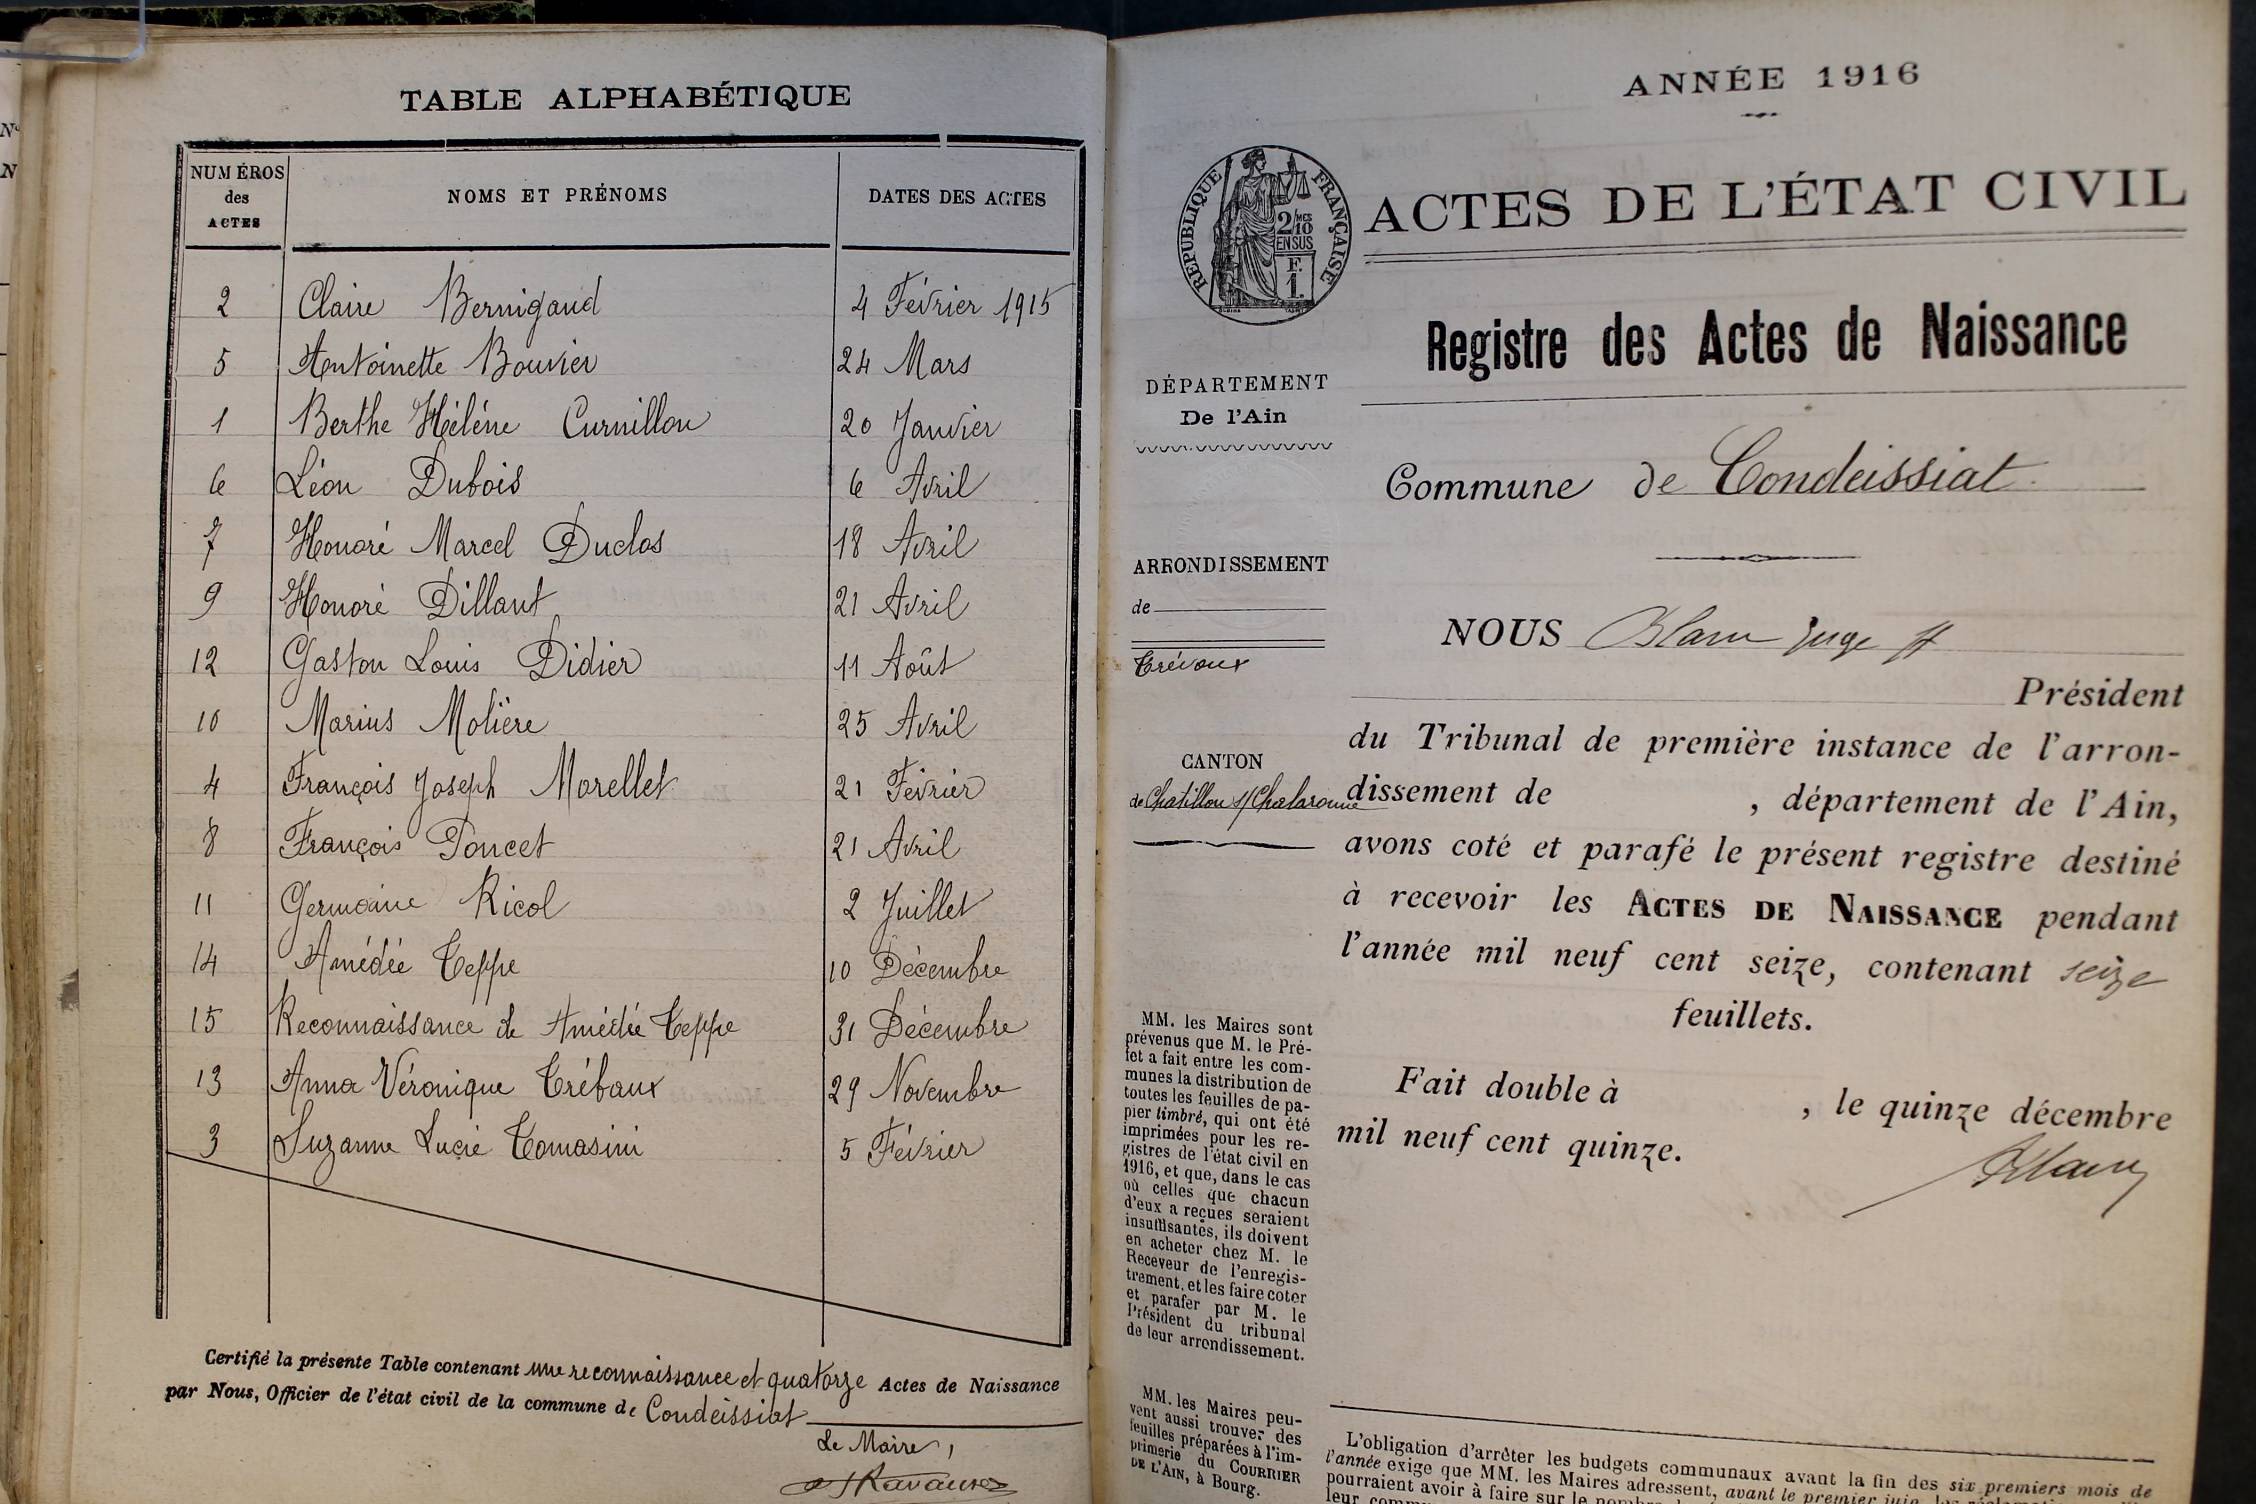 TABLE ALPHABÉTIQUE
NUMÉROS des ACTES NOMS ET PRÉNOMS DATES DES ACTES
2 Claire Bernigaud 4 Février 1915
5 Antoinette Bouvier 24 Mars
1 Berthe Hélène Curnillon 20 Janvier
6 Léon Dubois 6 Avril
7 Honoré Marcel Duclos 18 Avril
9 Honoré Dillant 21 Avril
12 Gaston Louis Didier 11 Août
10 Marius Molière 25 Avril
4 François Joseph Morellet 21 Février
8 François Poncet 21 Avril
11 Germaine Ricol 2 Juillet
14 Amédée Teppe 10 Décembre
15 Reconnaissance de Amédée Teppe 31 Décembre
13 Anna Véronique Trébaux 29 Novembre
3 Suzanne Lucie Tomasini 5 Février
Certifié la présente Table contenant une reconnaissance et quatorze Actes de Naissance
par Nous, Officier de l'état civil de la commune de Condeissiat
Le Maire,
ANNÉE 1916
RÉPUBLIQUE FRANÇAISE
2/10 MES
EN SUS
F.
1.
ACTES DE L'ÉTAT CIVIL
Registre des Actes de Naissance
DÉPARTEMENT
De l'Ain
Commune de Condeissiat
ARRONDISSEMENT
de
Trévoux
CANTON
de Chatillon s/ Chalaronne
NOUS Blanc Juge
Président
du Tribunal de première instance de l'arron-
dissement de , département de l'Ain,
avons coté et parafé le présent registre destiné
à recevoir les ACTES DE NAISSANCE pendant
l'année mil neuf cent seize, contenant seize
feuillets.
Fait double à , le quinze décembre
mil neuf cent quinze.
Blanc
MM. les Maires sont
prévenus que M. le Pré-
fet a fait entre les com-
munes la distribution de
toutes les feuilles de pa-
pier timbré, qui ont été
imprimées pour les re-
gistres de l'état civil en
1916, et que, dans le cas
où celles que chacun
d'eux a reçues seraient
insuffisantes, ils doivent
en acheter chez M. le
Receveur de l'enregis-
trement, et les faire coter
et parafer par M. le
Président du tribunal
de leur arrondissement.
MM. les Maires peu-
vent aussi trouver des
feuilles préparées à l'im-
primerie du COURRIER
DE L'AIN, à Bourg.
L'obligation d'arrêter les budgets communaux avant la fin des six premiers mois de
l'année exige que MM. les Maires adressent, avant le premier juin, les
pourraient avoir à faire sur le
leur